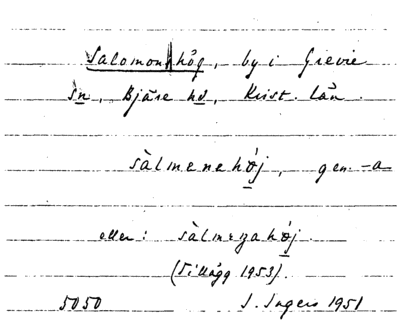 Salomonhög, by i Grevie
sn, Bjäre hd, Krist. län.
sàlmenehǿj, gen -a
eller: sàlmezahǿj.
(Tillägg 1953).
5050 I. Ingers 1951